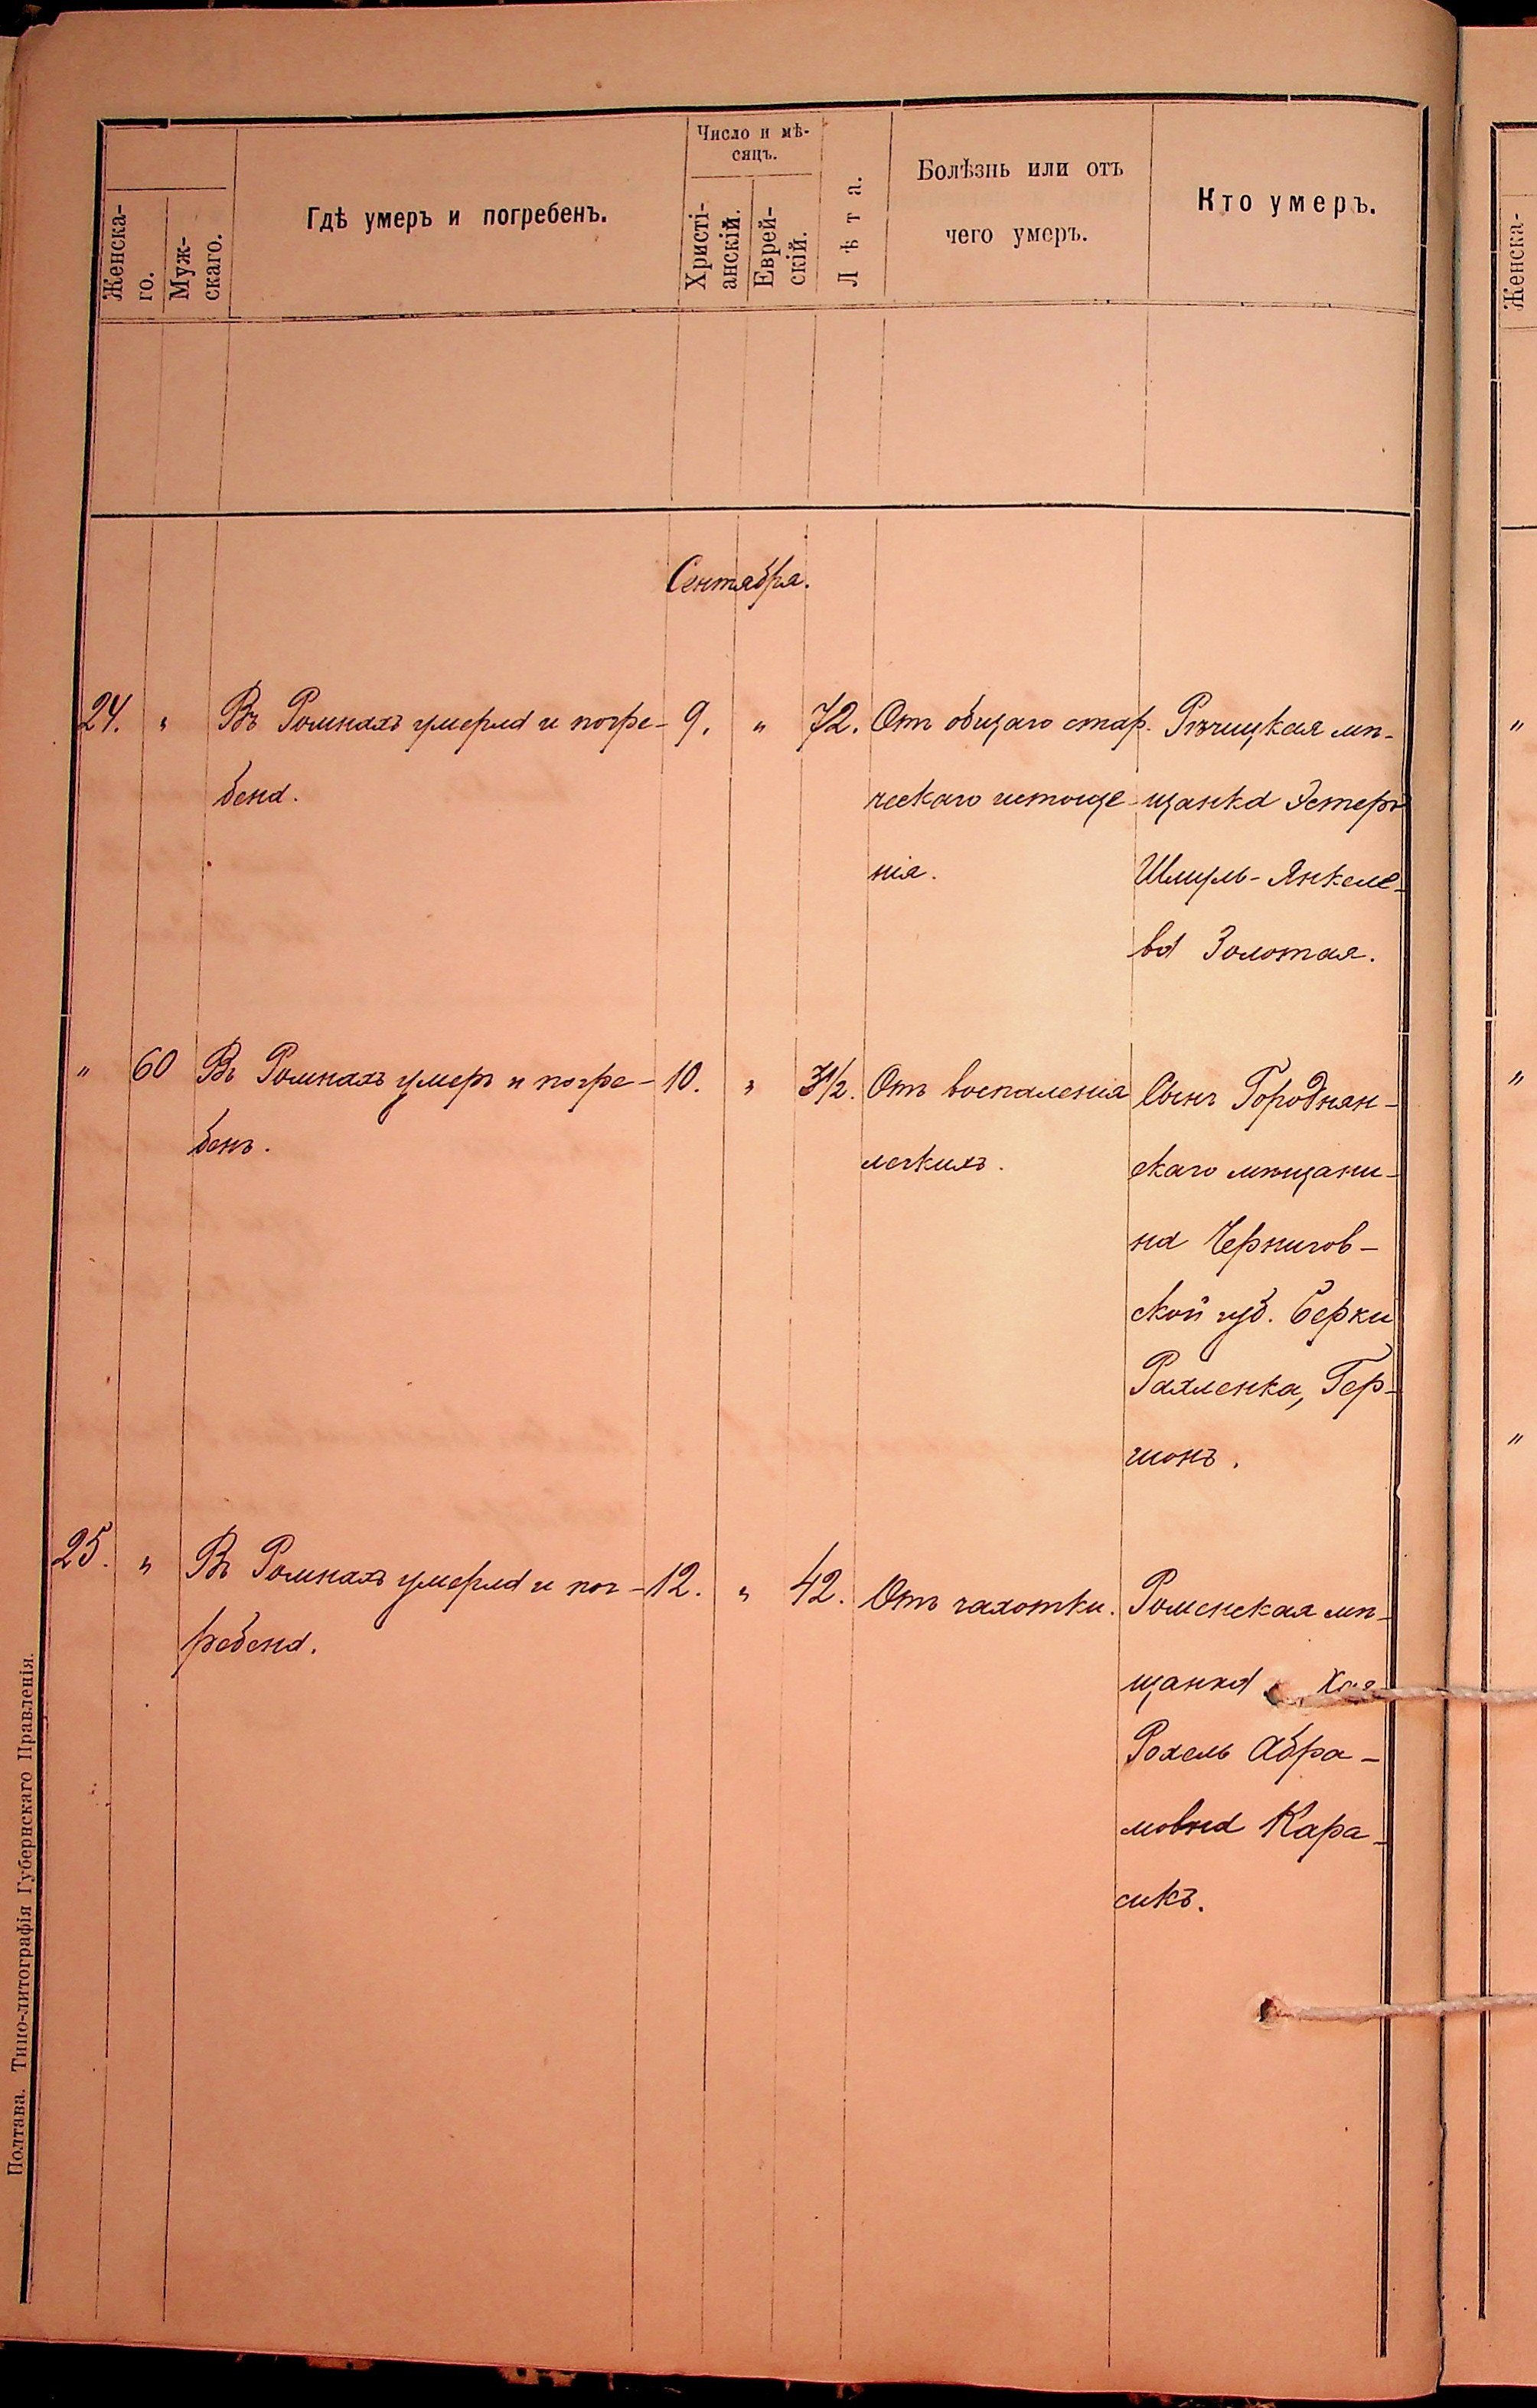 Женска-
го.
Муж-
скаго.
Гдѣ умеръ и погребенъ.
Число и мѣ-
сяцъ.
Христі-
анскій.
Еврей-
скій.
Лѣта.
Болѣзнь или отъ
чего умеръ.
Кто умеръ.
Сентября.
24. " Въ Ромнахъ умерла и погре- 9. " 72. Отъ общаго стар- Рѣчицкая мѣ-
бена. ческаго истоще- щанка Эстеръ
нія. Шмуль-Янкеле-
ва Золотая.
" 60 Въ Ромнахъ умеръ и погре- 10. " 3 1/2. Отъ воспаленія Сынъ Городнян-
бенъ. легкихъ. скаго мѣщани-
на Чернигов-
ской губ. Берки
Рахленка, Гер-
шонъ.
25. " Въ Ромнахъ умерла и пог- 12. " 42. Отъ чахотки. Роменская мѣ-
ребена. щанка Хая
Рохель Абра-
мовна Кара-
сикъ.
Полтава. Типо-литографія Губернскаго Правленія.
Женска-
"
"
"